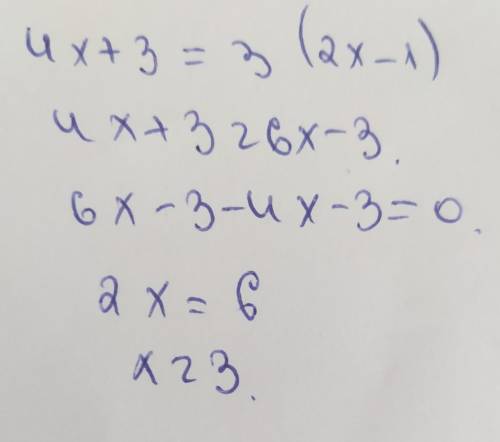 4x+3 = 3 (2x-1)
4x+3 = 6x-3.
6x-3-4x-3=0.
2x = 6
x = 3.